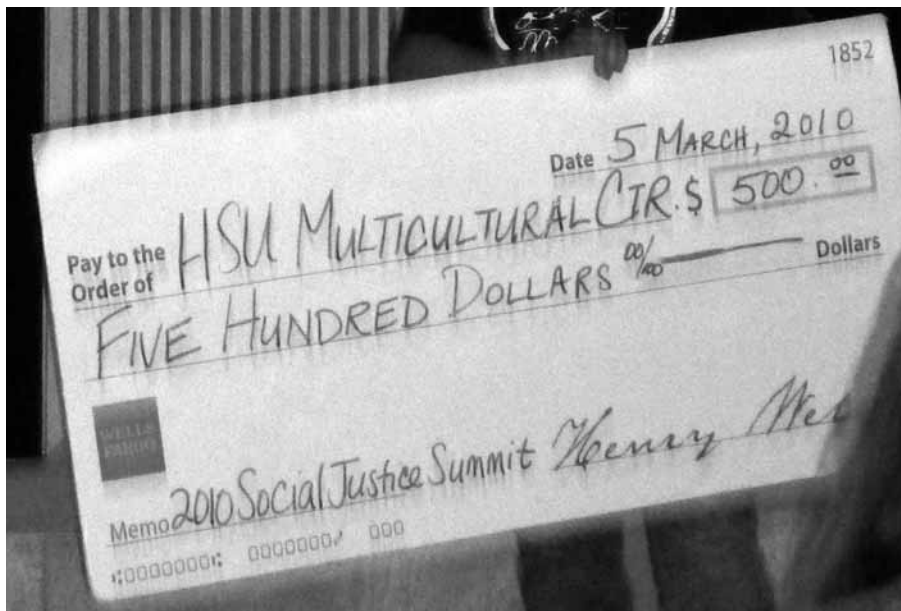 1852
Date 5 MARCH, 2010
Pay to the
Order of HSU MULTICULTURAL CTR. $ 500.00
FIVE HUNDRED DOLLARS 00/100 Dollars
WELLS
FARGO
Memo 2010 Social Justice Summit Henry
⑆00000000⑆ 0000000⑇ 000